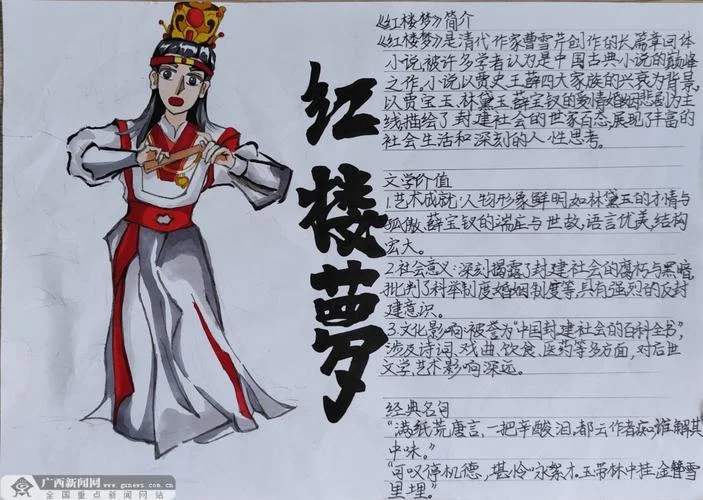 红楼萝
《红楼梦》简介
《红楼梦》是清代作家曹雪芹创作的长篇章回体
小说,被许多学者认为是中国古典小说的巅峰
之作,小说以贾史王薛四大家族的兴衰为背景,
以贾宝玉、林黛玉、薛宝钗的爱情婚姻悲剧为主
线,描绘了封建社会的世家百态,展现了丰富的
社会生活和深刻的人性思考。
文学价值
1.艺术成就:人物形象鲜明,如林黛玉的才情与
孤傲,薛宝钗的端庄与世故,语言优美,结构
宏大。
2.社会意义:深刻揭露了封建社会的腐朽与黑暗
批判了科举制度婚姻制度等,具有强烈的反封
建意识。
3.文化影响:被誉为“中国封建社会的百科全书”,
涉及诗词、戏曲、饮食、医药等多方面,对后世
文学艺术影响深远。
经典名句
“满纸荒唐言,一把辛酸泪,都云作者痴,谁解其
中味。”
“可叹停机德,堪怜咏絮才。玉带林中挂,金簪雪
里埋。”
广西新闻网
www.gxnews.com.cn
全国重点新闻网站